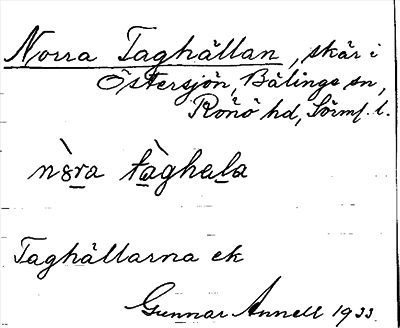 Norra Taghällan, skär i
Östersjön, Bälinge sn,
Rönö hd, Sörml. l.
nòra tàghala
Taghällarna ek
Gunnar Annell 1933